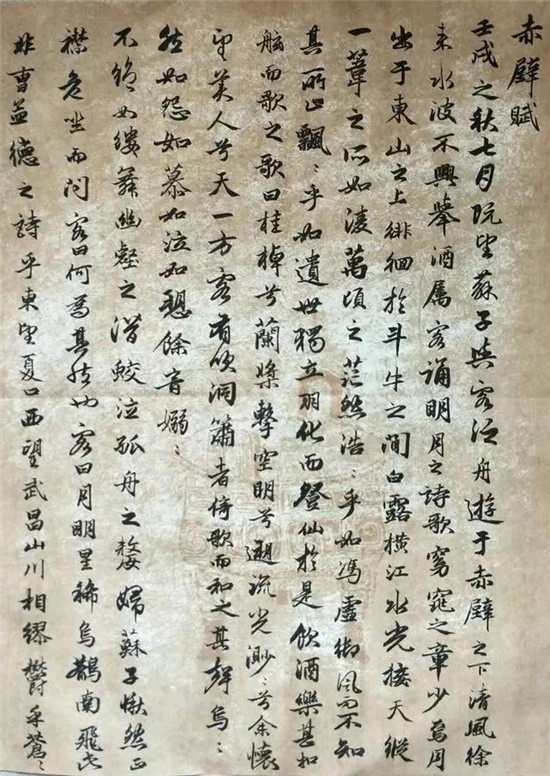 赤壁賦
壬戌之秋七月既望蘇子與客泛舟遊于赤壁之下清風徐
来水波不興舉酒属客誦明月之詩歌窈窕之章少焉月
出于東山之上徘徊於斗牛之間白露横江水光接天縱
一葦之所如凌萬頃之茫然浩〻乎如馮虚御風而不知
其所止飄〻乎如遺世獨立羽化而登仙於是飲酒樂甚扣
舷而歌之歌曰桂棹兮蘭槳擊空明兮遡流光渺〻兮余懷
望美人兮天一方客有吹洞簫者倚歌而和之其聲烏〻
然如怨如慕如泣如愬餘音嫋〻
不絶如縷舞幽壑之潜蛟泣孤舟之嫠婦蘇子愀然正
襟危坐而問客曰何為其然也客曰月明星稀烏鵲南飛此
非曹孟德之詩乎東望夏口西望武昌山川相繆鬱乎蒼〻